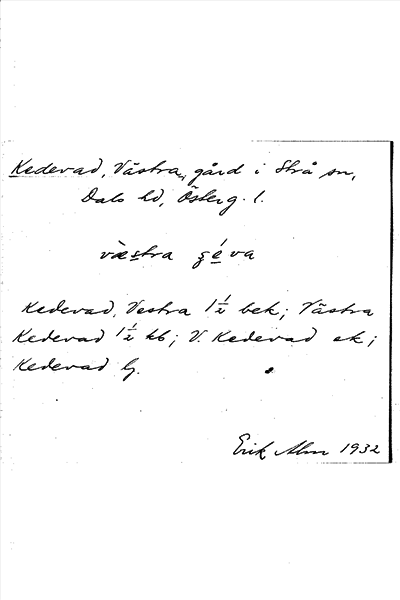 Kedevad, Västra, gård i Strå sn,
Dals hd, Österg. l.
væstra ȿéva
Kedevad, Vestra 1 1/2 bek; Västra
Kedevad 1 1/2 kb; V. Kedevad ek;
Kedevad lj.
Erik Alm 1932